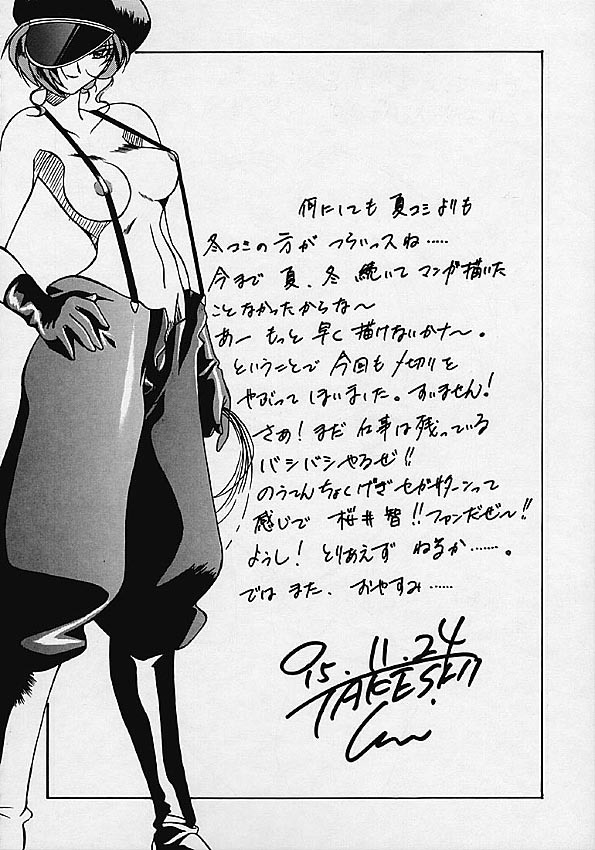 何にしても 夏コミよりも
冬コミの方が つらいっスね……
今まで 夏、冬 続いて マンガ描いた
ことなかったからな〜
あー もっと 早く 描けないかナー。
ということで 今回も 〆切りを
やぶって しまいました。すいません!
さぁ! まだ 仕事は残っている
バシバシやるぜ!!
のうてんちょくげき セガサターンって
感じで 桜井智!! ファンだぜ〜!!
ようし! とりあえず ねるか……。
では また、 おやすみ……
'95.11.24